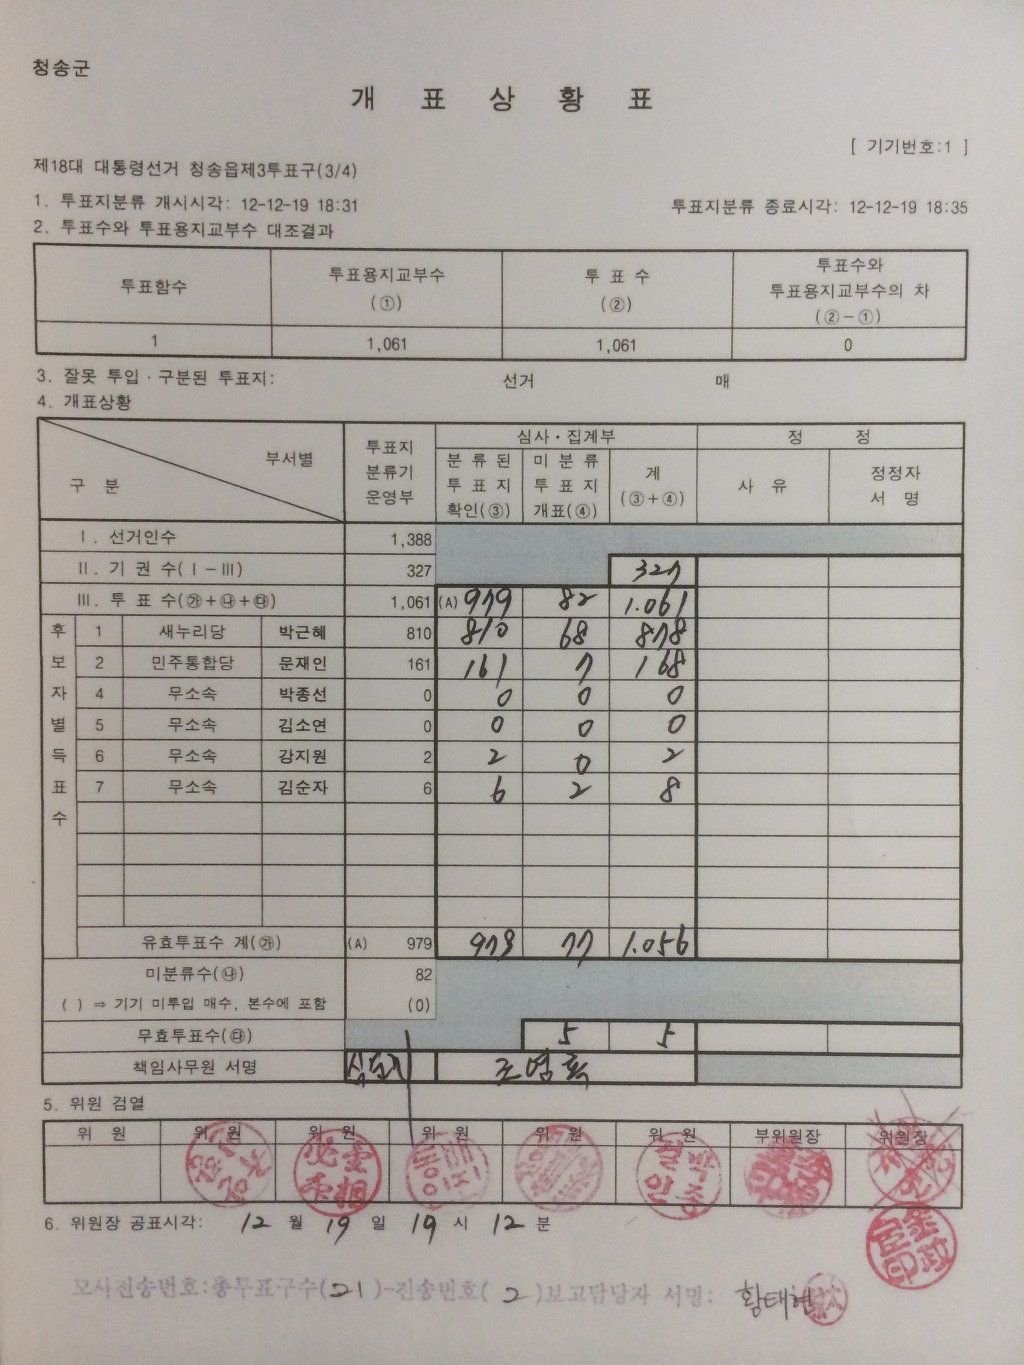 청송군
개 표 상 황 표
[ 기기번호:1 ]
제18대 대통령선거 청송읍제3투표구(3/4)
1. 투표지분류 개시시각: 12-12-19 18:31 투표지분류 종료시각: 12-12-19 18:35
2. 투표수와 투표용지교부수 대조결과
투표함수 투표용지교부수 (①) 투 표 수 (②) 투표수와 투표용지교부수의 차 (②-①)
1 1,061 1,061 0
3. 잘못 투입·구분된 투표지: 선거 매
4. 개표상황
구 분 부서별 투표지 분류기 운영부 심사·집계부 정 정
분 류 된 투 표 지 확인(③) 미 분 류 투 표 지 개표(④) 계 (③+④) 사 유 정정자 서 명
Ⅰ. 선거인수 1,388
Ⅱ. 기 권 수(Ⅰ-Ⅲ) 327 327
Ⅲ. 투 표 수(㉮+㉯+㉰) 1,061 (A) 979 82 1.061
후보자별득표수
1 새누리당 박근혜 810 810 68 878
2 민주통합당 문재인 161 161 7 168
4 무소속 박종선 0 0 0 0
5 무소속 김소연 0 0 0 0
6 무소속 강지원 2 2 0 2
7 무소속 김순자 6 6 2 8
유효투표수 계(㉮) (A) 979 979 77 1.056
미분류수(㉯) 82
( ) ⇒ 기기 미투입 매수, 본수에 포함 (0)
무효투표수(㉰) 5 5
책임사무원 서명
5. 위원 검열
위 원 위 원 위 원 위 원 위 원 위 원 부위원장 위원장
6. 위원장 공표시각: 12 월 19 일 19 시 12 분
모사전송번호:총투표구수(21)-전송번호( 2 )보고담당자 서명: 황태현